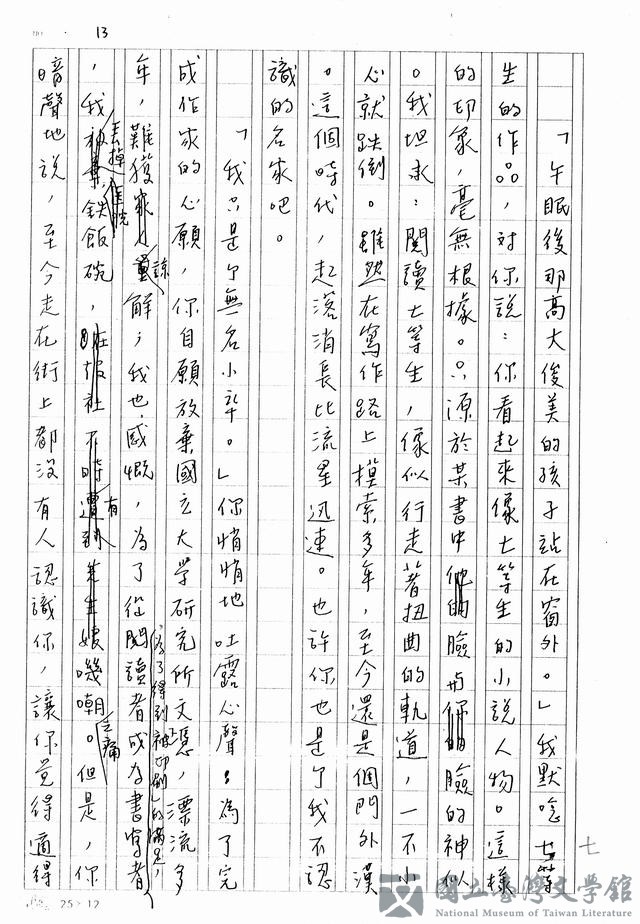 13
七
「午眠後那高大俊美的孩子站在窗外。」我默唸七等
生的作品,對你說:你看起來像七等生的小說人物。這樣
的印象,毫無根據。只源於某書中他的臉與你的臉的神似
。我坦承:閱讀七等生,像似行走著扭曲的軌道,一不小
心就跌倒。雖然在寫作路上摸索多年,至今還是個門外漢
。這個時代,起落消長比流星迅速。也許你也是个我不認
識的名家吧。
「我只是个無名小卒。」你悄悄地吐露心聲:為了完
成作家的心願,你自願放棄國立大學研究所文憑,漂流多
年,難獲家人諒解;我也感慨,為了從閱讀者成為書寫者
為了得到被印刷的滿足,
,我丟掉醫院鐵飯碗,有先生嫂嘰嘲之痛。但是,你
暗聲地說,至今走在街上都沒有人認識你,讓你覺得適得
25×12
國立臺灣文學館
National Museum of Taiwan Literature